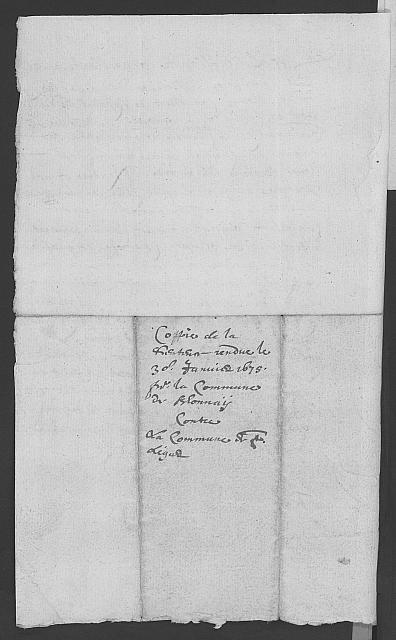 Coppie de la
sentence rendue le
30e. Janvier 1675.
pr. la Commune
de Blonnaÿ
Contre
La Commune de St.
Ligier